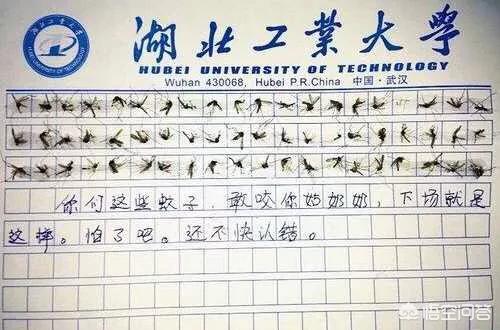 湖北工業大學
HUBEI UNIVERSITY OF TECHNOLOGY
Wuhan 430068, Hubei P.R.China 中国·武汉
你们这些蚊子,敢咬你奶奶,下场就是
这样。怕了吧。还不快认错。
悟空问答